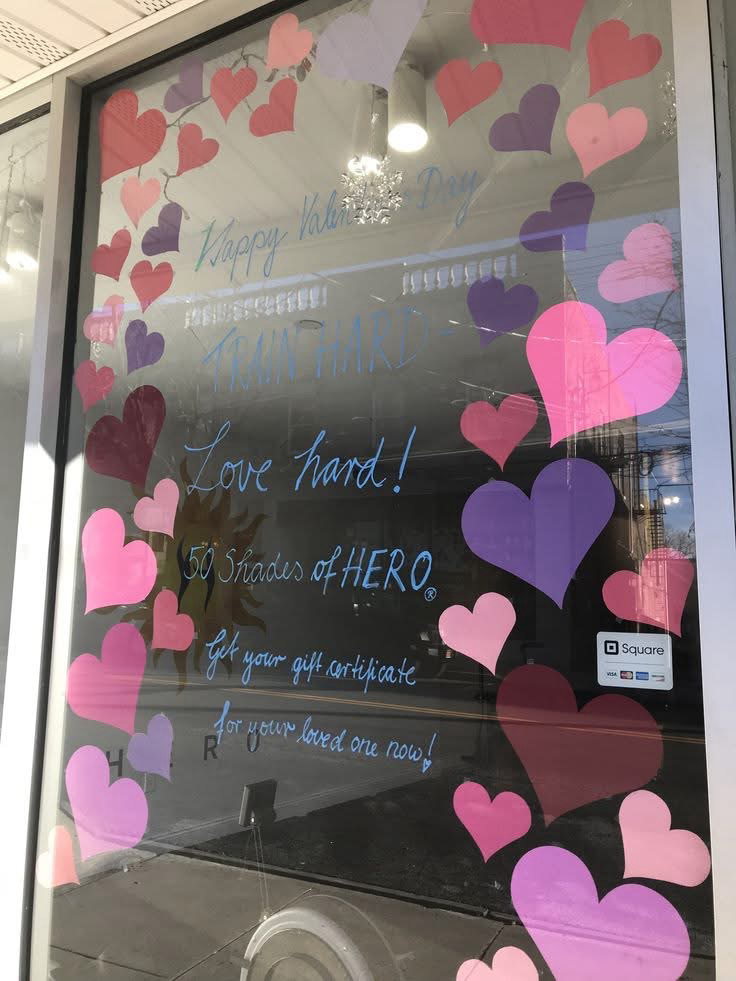 Happy Valentine's Day
TRAIN HARD -
Love hard!
50 Shades of HERO®
Get your gift certificate
for your loved one now!
HERO
Square
VISA